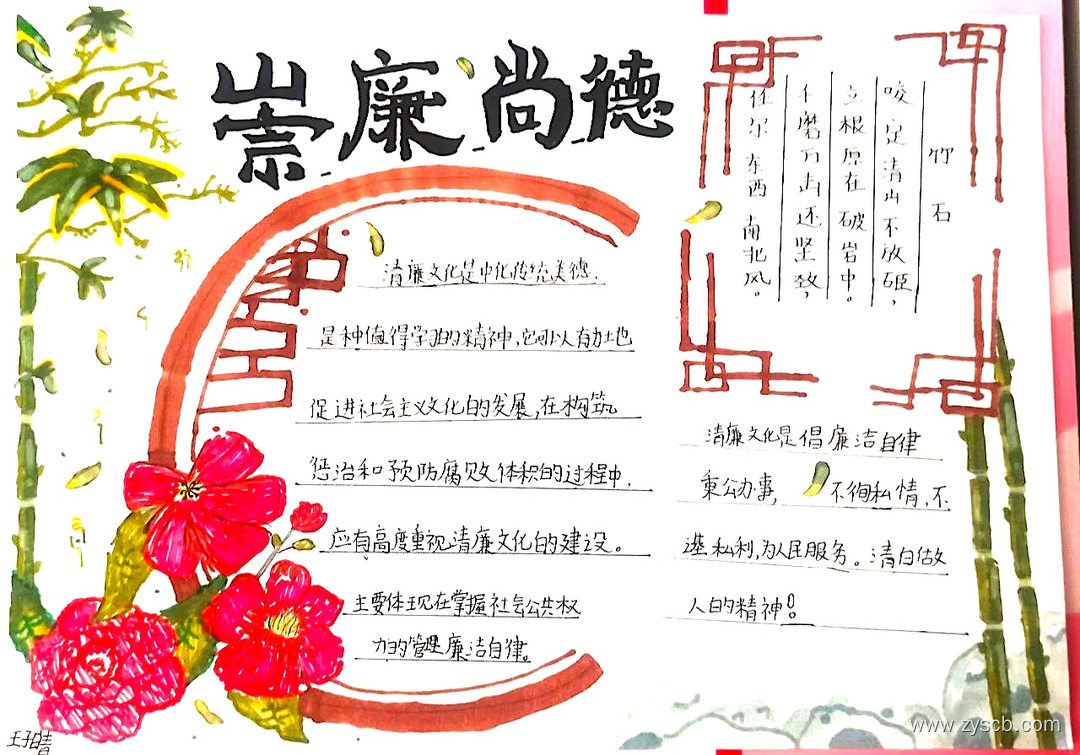 崇廉尚德
竹石
咬定清山不放
立根原在破岩中。
千磨万击还坚致,
任尔东西南北风。
清廉文化是中化传统美德.
是种值得学习的精神,它可以有力地
促进社会主义文化的发展,在构筑
惩治和预防腐败体积的过程中.
应有高度重视清廉文化的建设。
主要体现在掌握社会公共权
力的管理廉洁自律。
清廉文化是倡廉洁自律
秉公办事, 不徇私情,不
私利,为人民服务。清白做
人的精神!
王子晴
www.zyscb.com